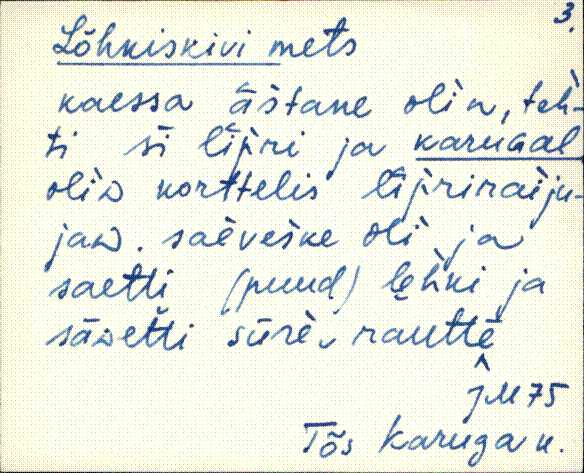 3.
Lõhkiskivi mets
kaessa āštane olin, teh-
ti sī līpri ja karugal
olin korttelis līpriraiju-
jan. saeveške oli ja
saetti (puud) lęhki ja
sāvetti sūrè, rauttē
JM 75
Tõs Karuga n.